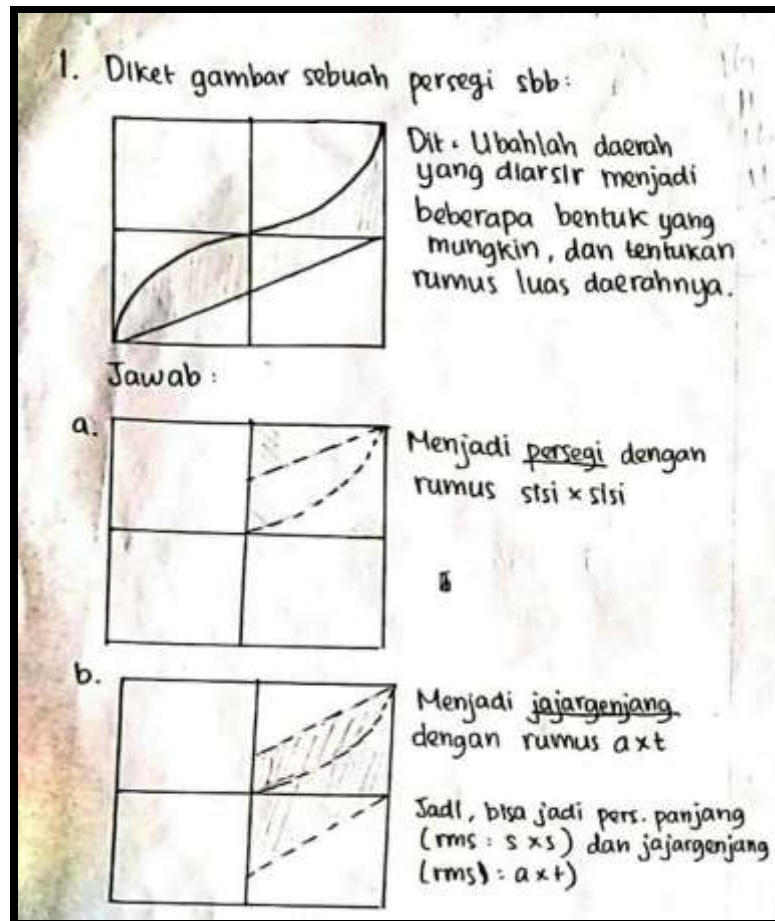 1. Diket gambar sebuah persegi sbb:
Dit: Ubahlah daerah
yang diarsir menjadi
beberapa bentuk yang
mungkin, dan tentukan
rumus luas daerahnya.
Jawab:
a.
Menjadi persegi dengan
rumus sisi × sisi
b.
Menjadi jajargenjang
dengan rumus a×t
Jadi, bisa jadi pers. panjang
(rms: s × s) dan jajargenjang
(rms): a × t)